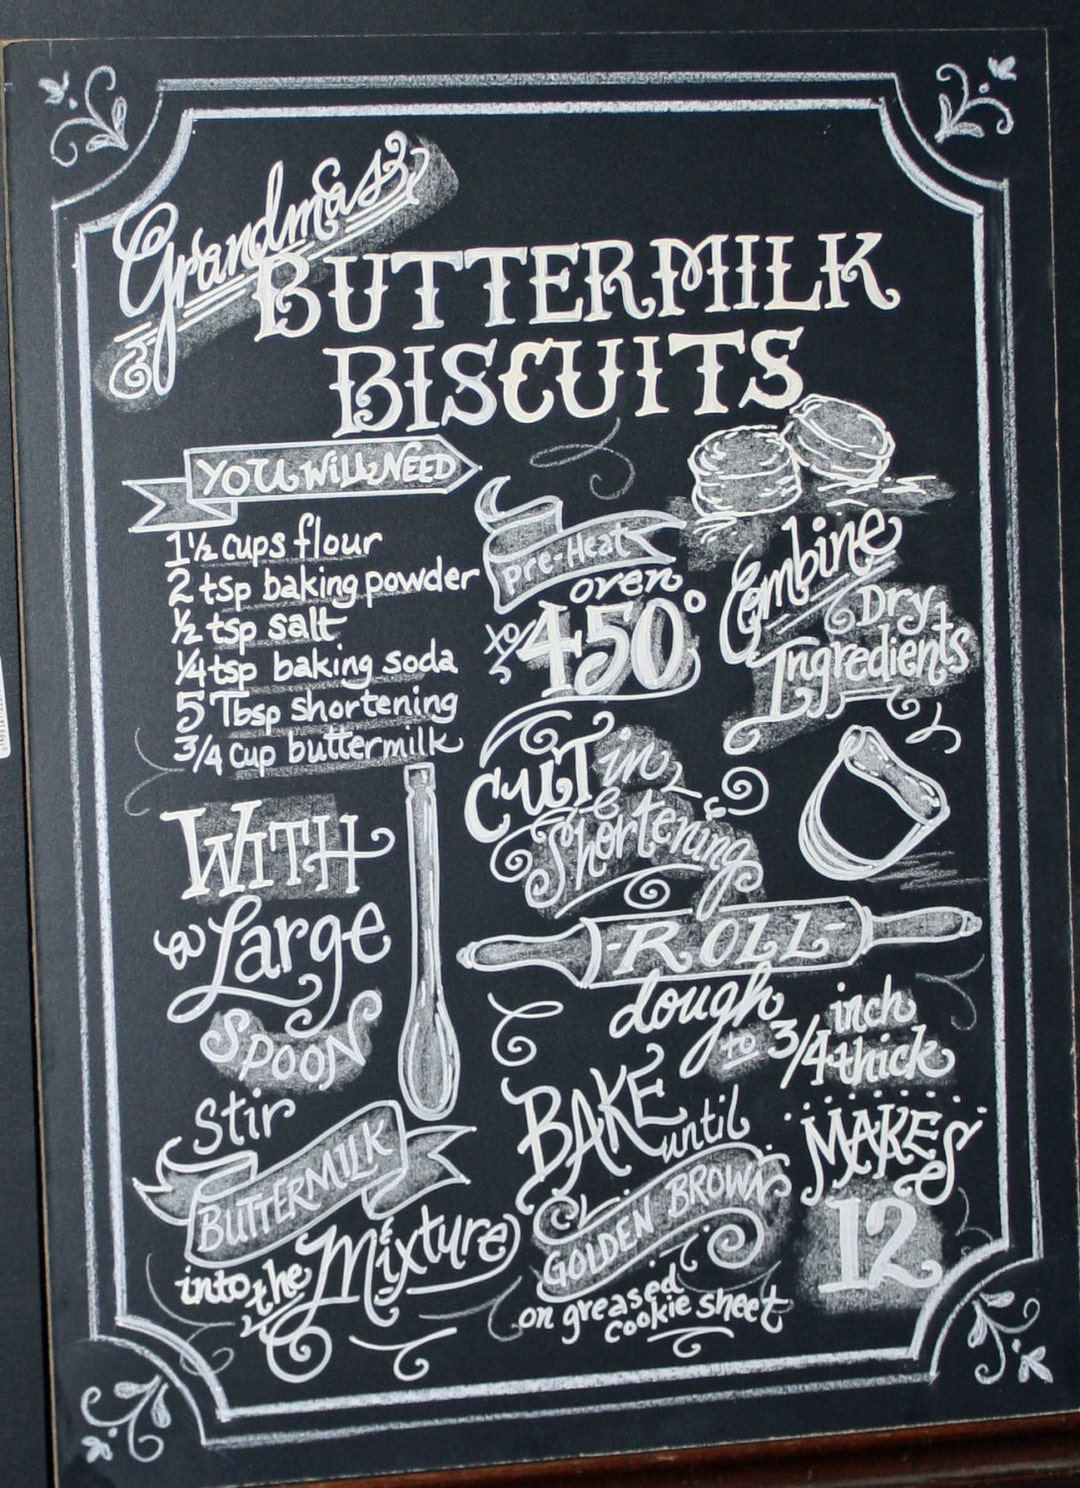 Grandmas
BUTTERMILK
BISCUITS
YOU WILL NEED
1 1/2 cups flour
2 tsp baking powder
1/2 tsp salt
1/4 tsp baking soda
5 Tbsp shortening
3/4 cup buttermilk
Pre-Heat
oven
to 450°
Combine
Dry
Ingredients
CUT in
Shortening
WITH
a Large
SPOON
Stir
BUTTERMILK
into the Mixture
-ROLL-
dough
to 3/4 inch
thick
BAKE
until
GOLDEN BROWN
on greased
cookie sheet
MAKES
12